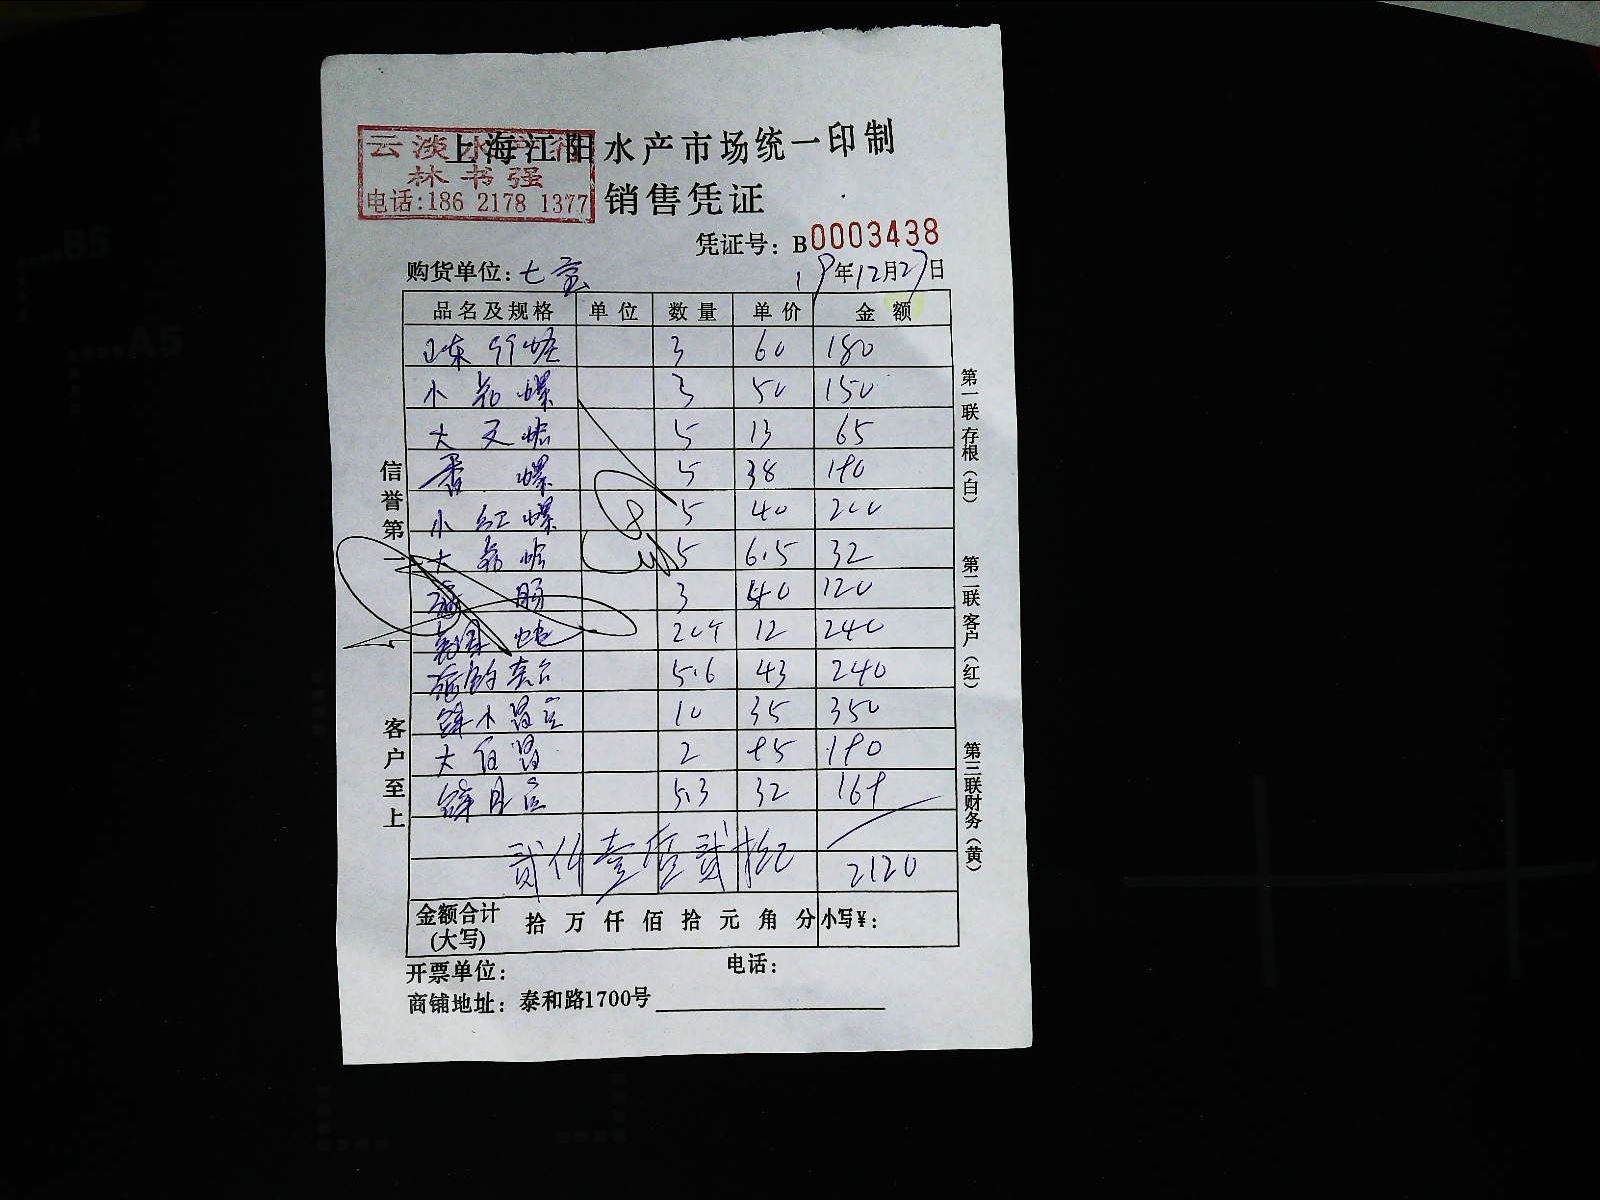 上海江阳水产市场统一印制
云淡水产行
林书强
电话:186 2178 1377
销售凭证
凭证号: B0003438
购货单位: 七宝 19年12月27日
品名及规格 单位 数量 单价 金额
3 60 180
小花螺 3 50 150
大文蛤 5 13 65
香螺 5 38 190
小红螺 5 40 200
大花蛤 5 6.5 32
3 40 120
20个 12 240
5.6 43 240
10 35 350
2 95 190
5.3 32 169
贰仟壹佰贰拾元 2120
金额合计(大写) 拾 万 仟 佰 拾 元 角 分 小写¥:
开票单位: 电话:
商铺地址: 泰和路1700号
信誉第一 客户至上
第一联存根(白) 第二联客户(红) 第三联财务(黄)